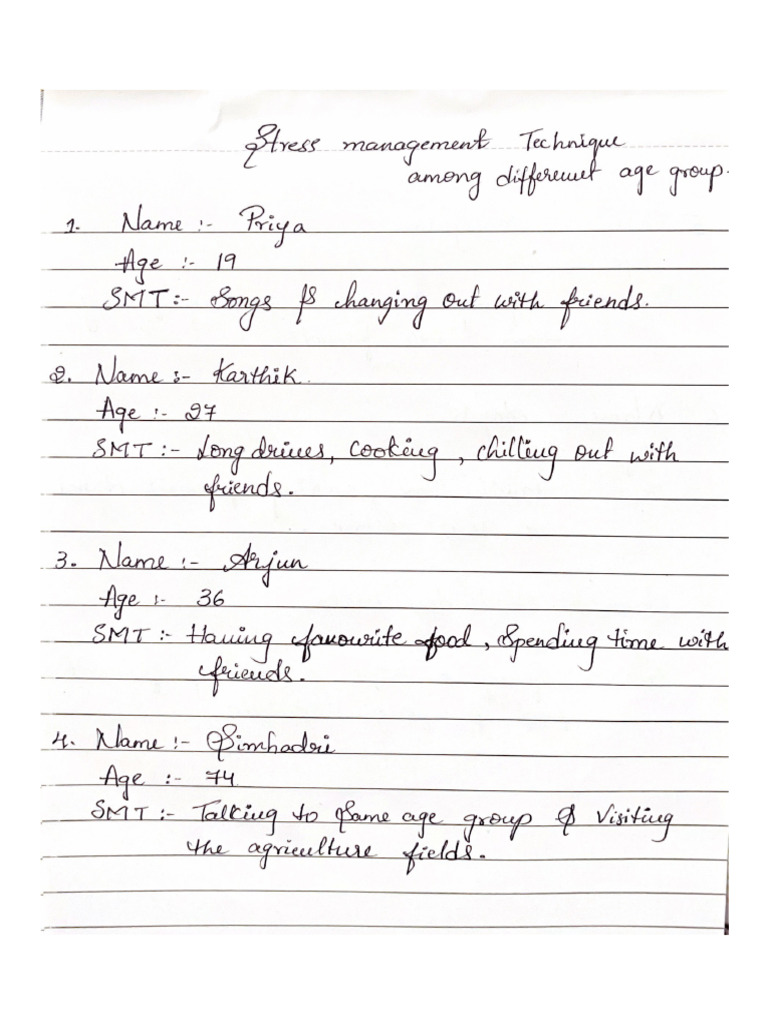 Stress management Technique
among differemet age group.
1. Name :- Priya
Age :- 19
SMT :- Songs & changing out with friends.
2. Name :- Karthik
Age :- 27
SMT :- Long drives, cooking, chilling out with
friends.
3. Name :- Arjun
Age :- 36
SMT :- Having favourite food, Spending time with
friends.
4. Name :- Simhadri
Age :- 74
SMT :- Talking to Same age group & Visiting
the agriculture fields.